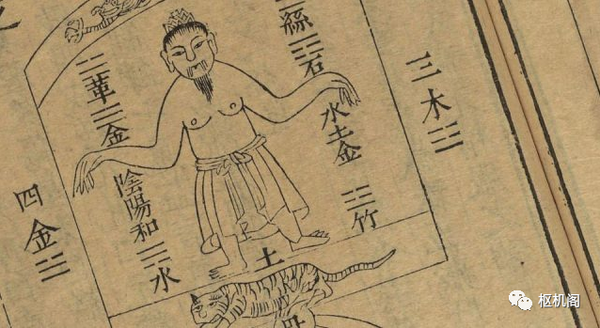 三木
絲 石
水土金 竹
革 金
陰陽和 水
土
四金
枢机阁